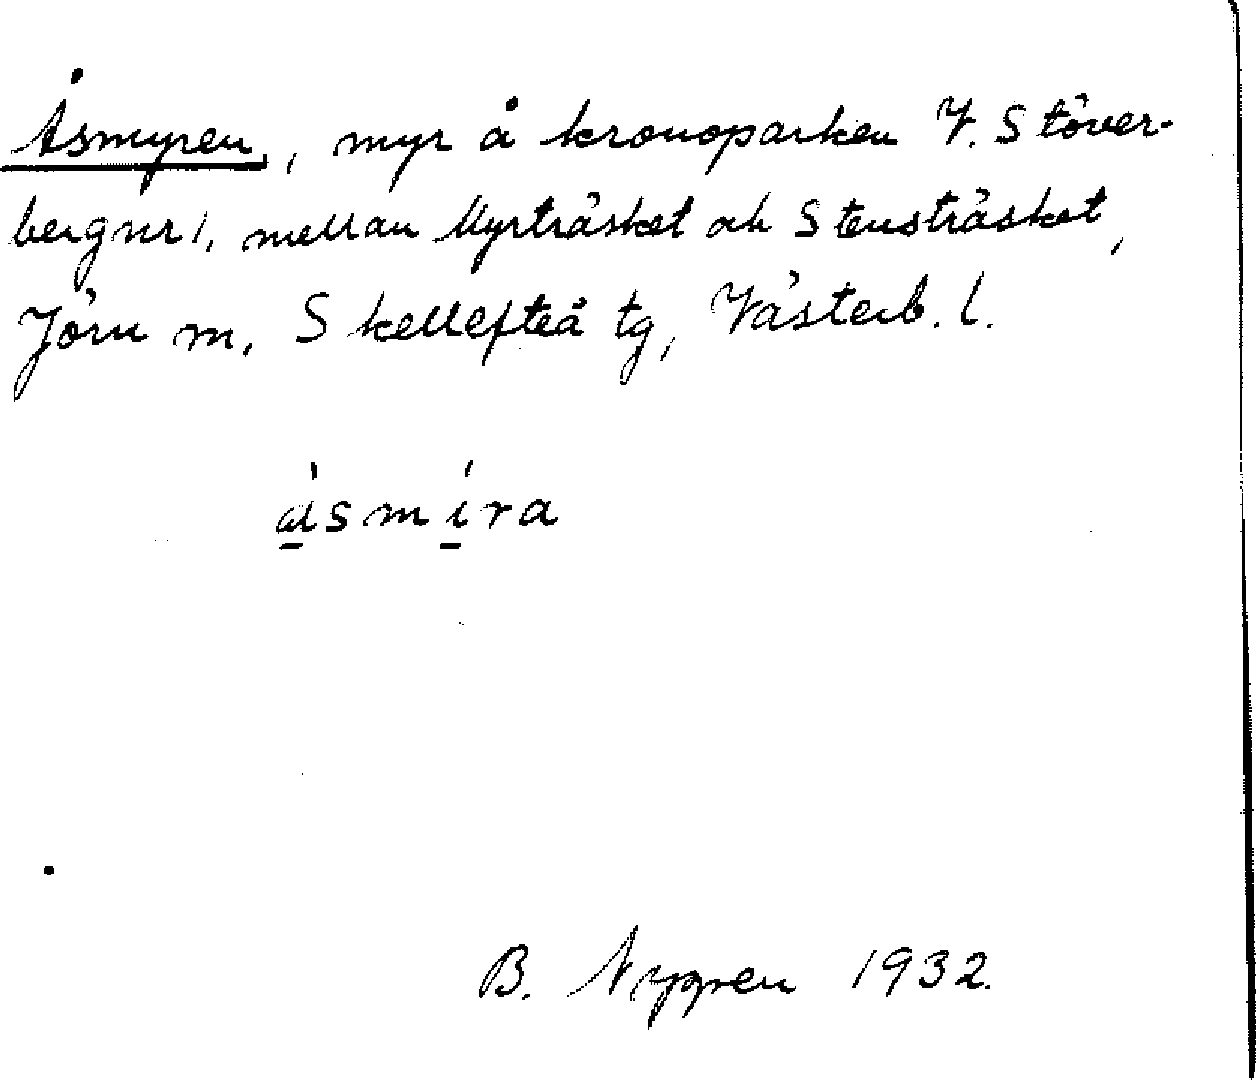 Åsmyren, myr å kronoparken V. Stöver-
berg nr 1, mellan Myrträsket och Stensträsket,
Jörn sn, Skellefteå tg, Västerb. l.
àsmíra
B. Nygren 1932.